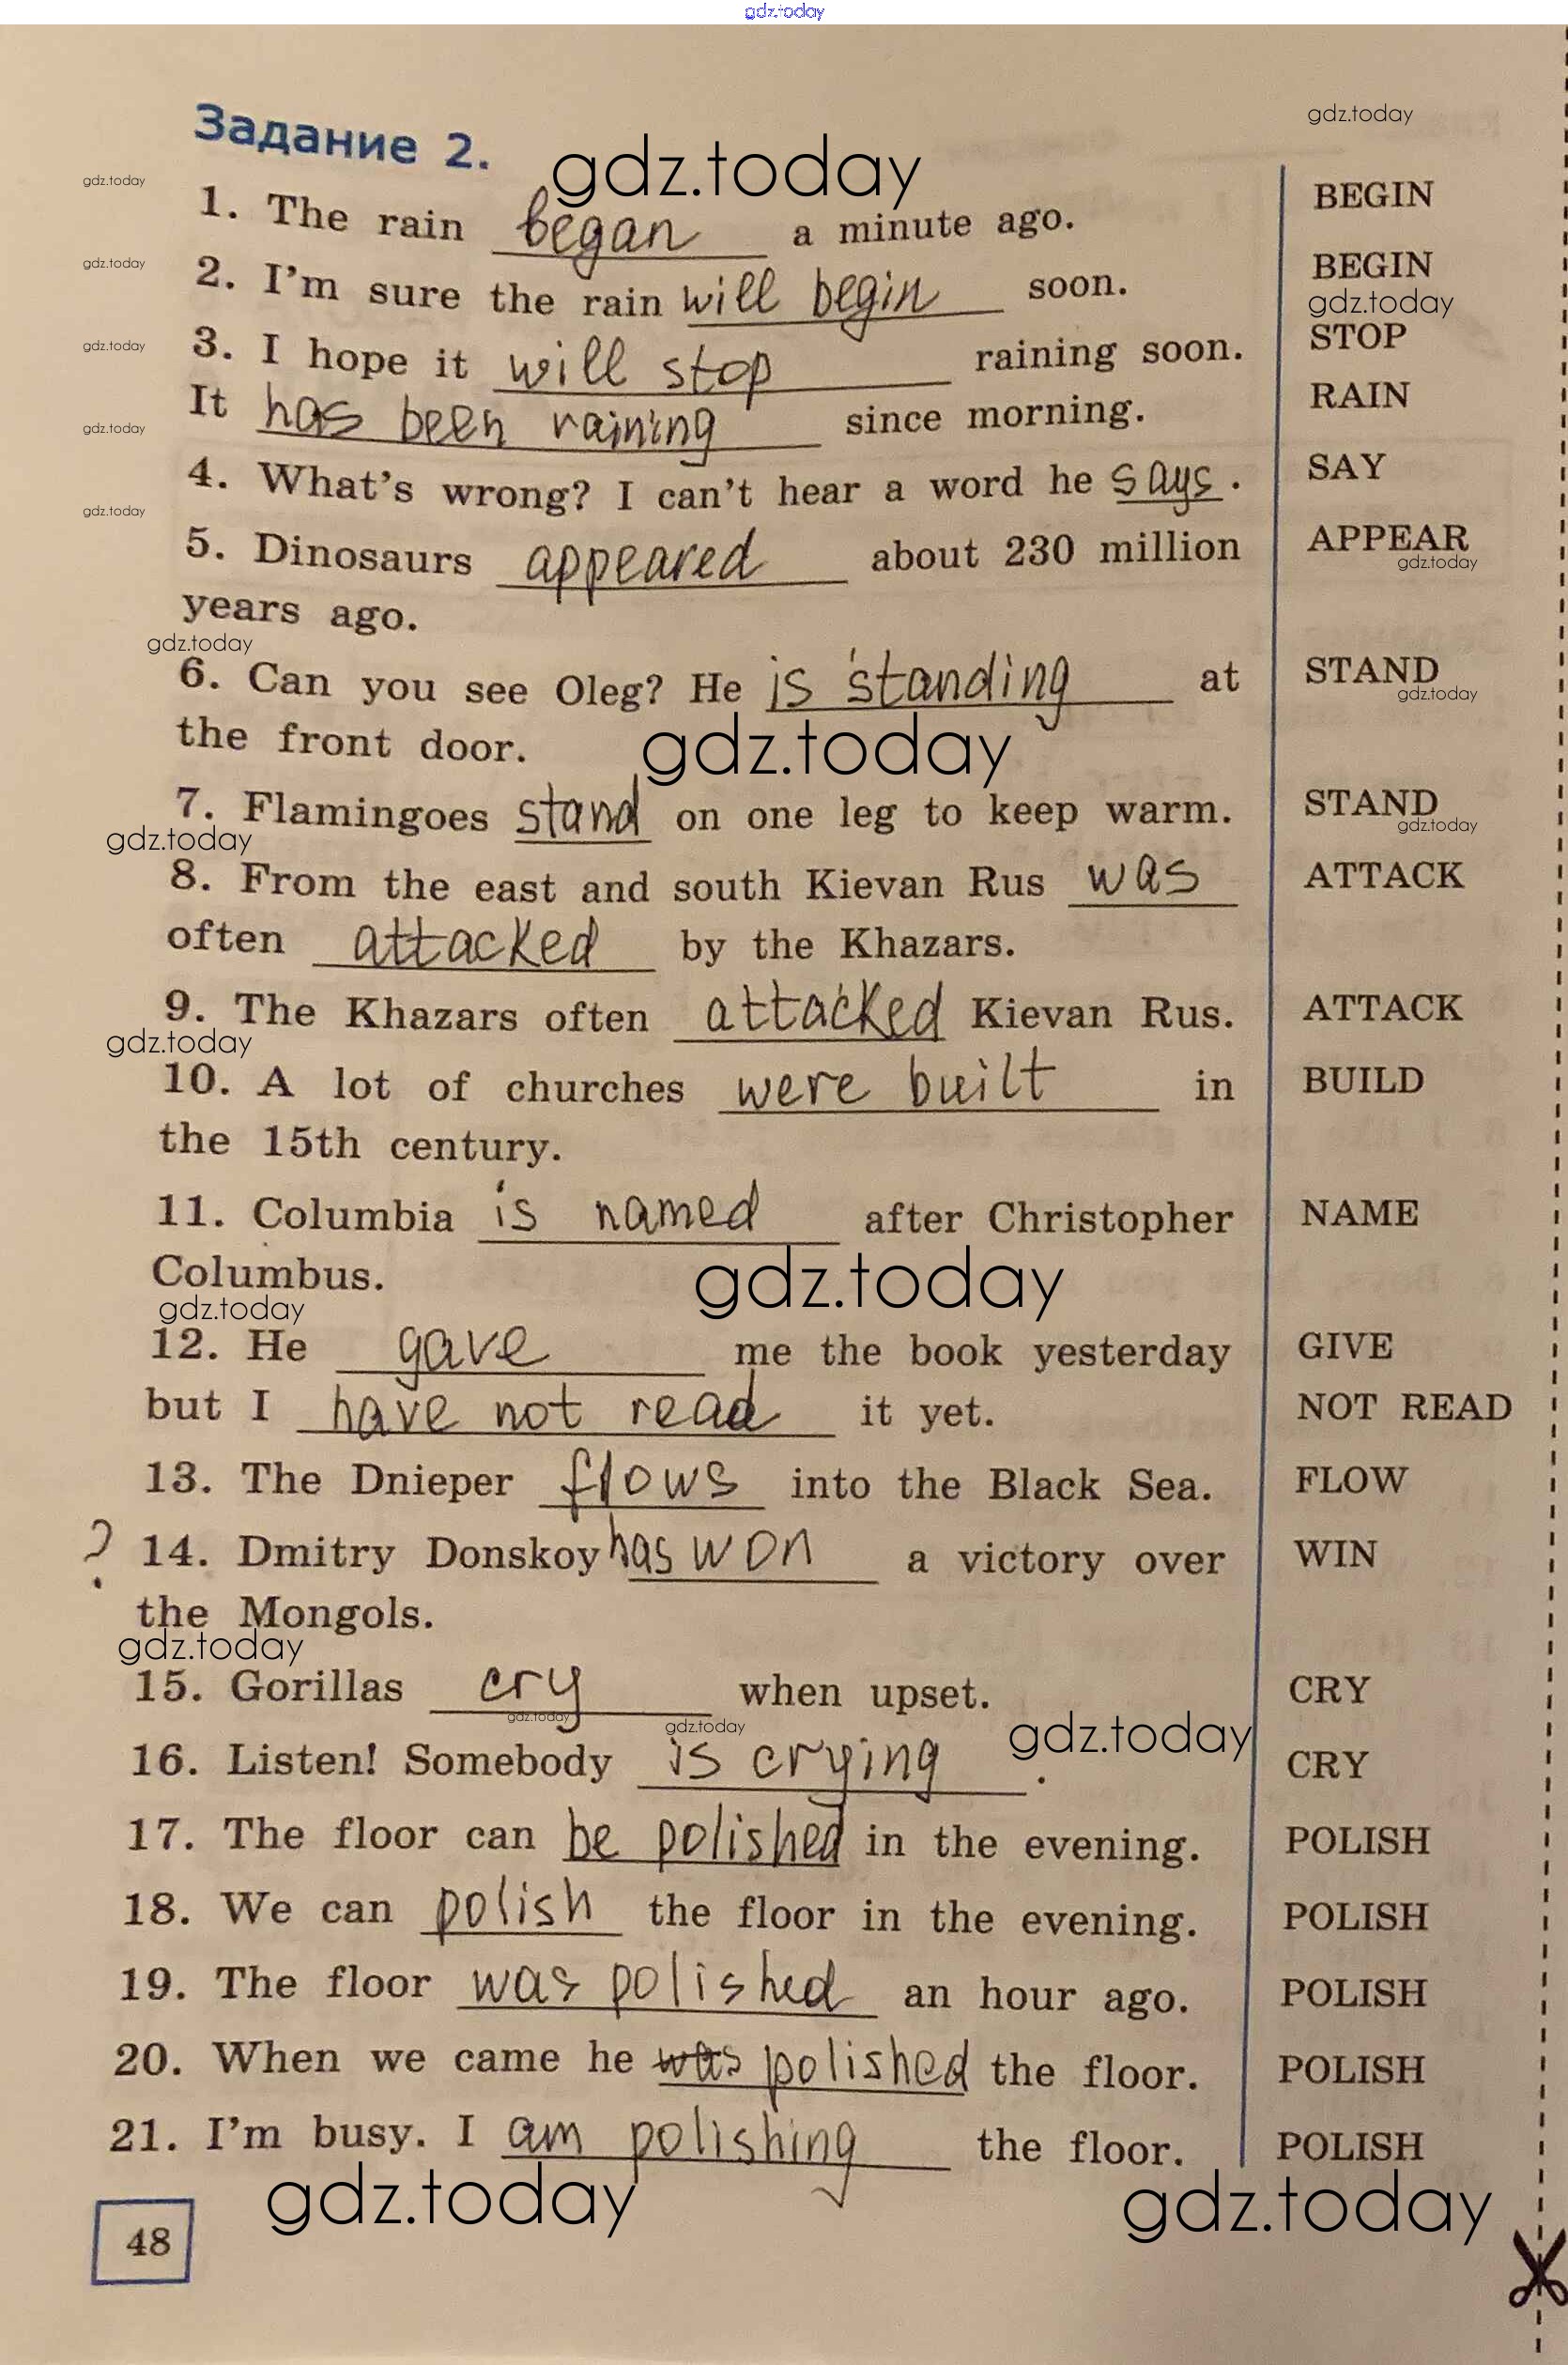 gdz.today
gdz.today
Задание 2.
gdz.today
gdz.today
1. The rain began a minute ago. BEGIN
gdz.today
2. I'm sure the rain will begin soon. BEGIN
gdz.today
3. I hope it will stop raining soon. STOP
gdz.today
It has been raining since morning. RAIN
gdz.today
4. What's wrong? I can't hear a word he says. SAY
gdz.today
5. Dinosaurs appeared about 230 million APPEAR
gdz.today
years ago.
gdz.today
6. Can you see Oleg? He is standing at STAND
gdz.today
the front door.
gdz.today
7. Flamingoes stand on one leg to keep warm. STAND
gdz.today
gdz.today
8. From the east and south Kievan Rus was ATTACK
often attacked by the Khazars.
9. The Khazars often attacked Kievan Rus. ATTACK
gdz.today
10. A lot of churches were built in BUILD
the 15th century.
11. Columbia is named after Christopher NAME
Columbus.
gdz.today
gdz.today
12. He gave me the book yesterday GIVE
but I have not read it yet. NOT READ
13. The Dnieper flows into the Black Sea. FLOW
? 14. Dmitry Donskoy has won a victory over WIN
the Mongols.
gdz.today
15. Gorillas cry when upset. CRY
gdz.today
gdz.today
gdz.today
16. Listen! Somebody is crying. CRY
17. The floor can be polished in the evening. POLISH
18. We can polish the floor in the evening. POLISH
19. The floor was polished an hour ago. POLISH
20. When we came he was polished the floor. POLISH
21. I'm busy. I am polishing the floor. POLISH
gdz.today
gdz.today
48